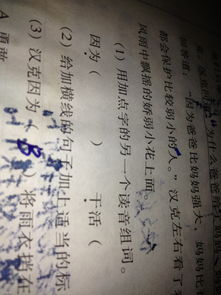 为什么爸爸给
"因为爸爸比妈妈强大，妈妈比
都会保护比较弱小的人。"汉克左右看了
风雨中飘摇的娇弱小花上面。
(1) 用加点字的另一个读音组词。
因为（ ） 干活（ ）
(2) 给加横线的句子加上适当的标
(3) 汉克因为（ B ）将雨衣挡在
A 勇敢